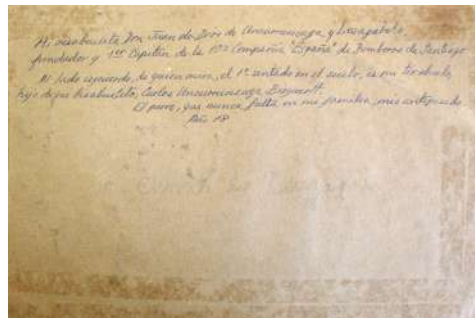 Mi bisabuelito Don Juan de Dios de Unzurrunzaga y
fundador y 1er Capitán de la 10ma Compañía "España" de Bomberos de Santiago
Al lado izquierdo, de quien mira, el 1º sentado en el suelo, es mi tío abuelo,
hijo de que bisabuelito, Carlos Unzurrunzaga
El perro, que nunca falta en mi familia, mis antepasado
Año 18